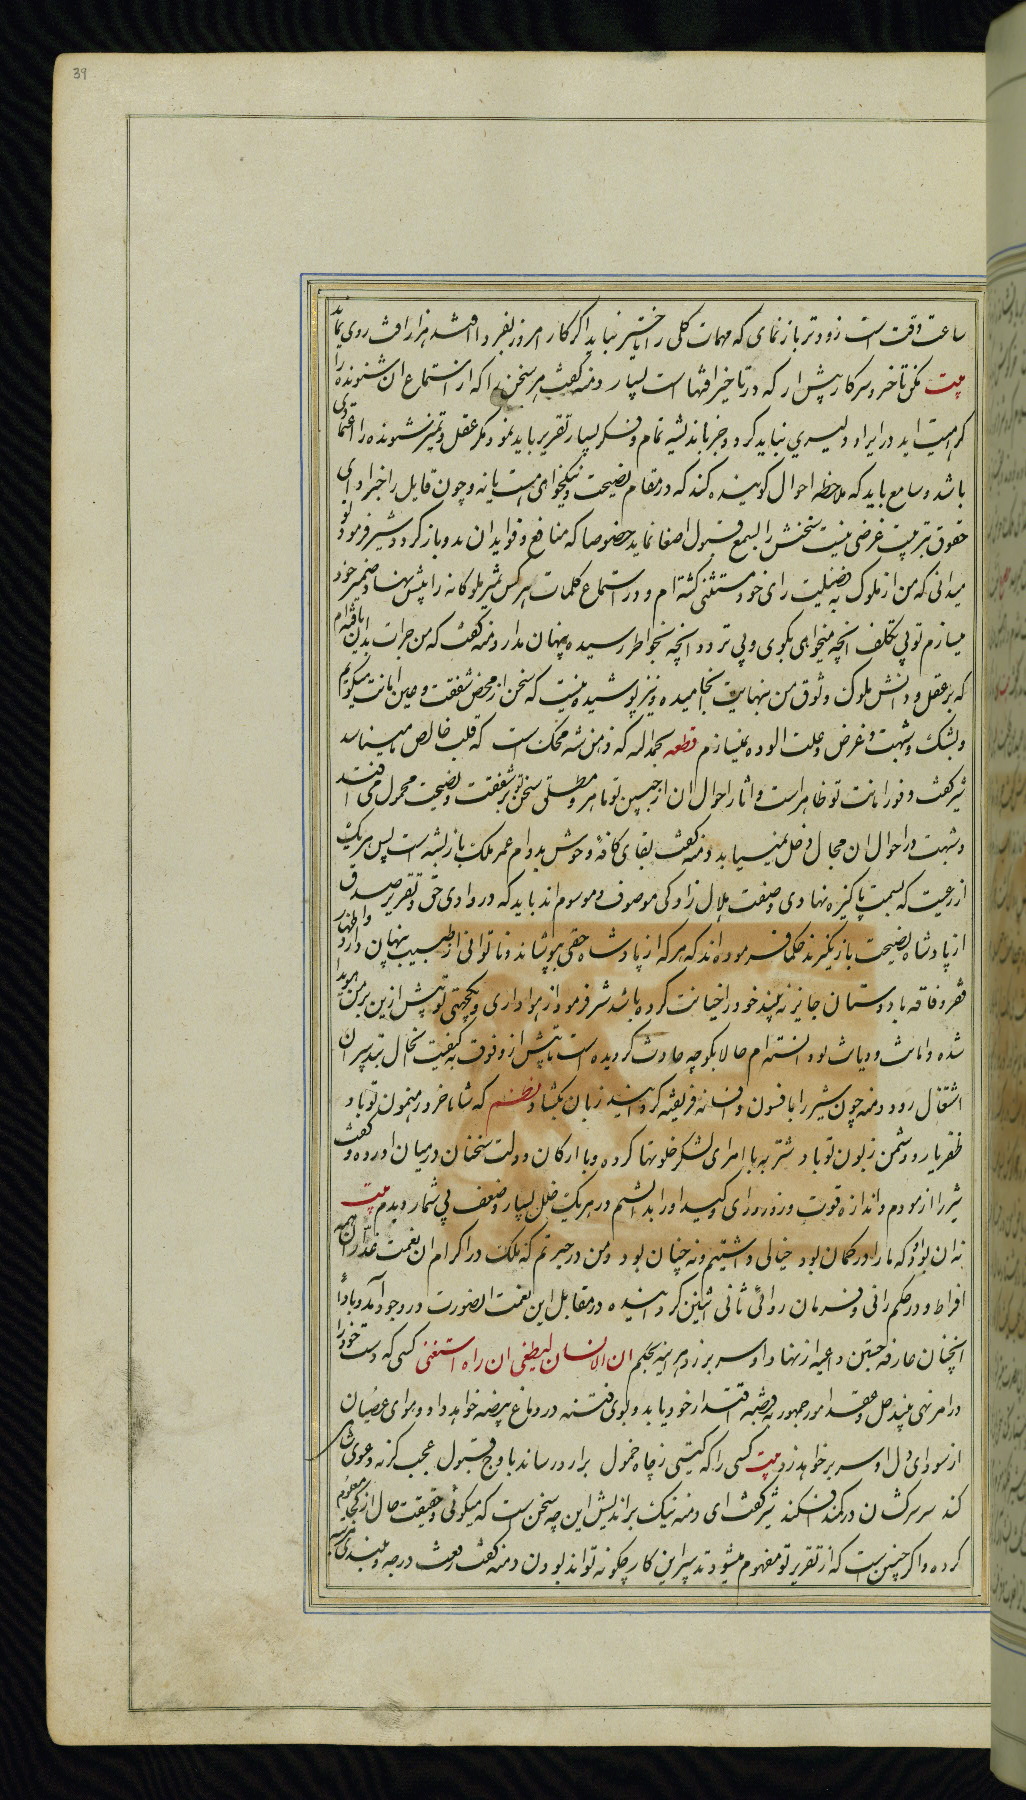 39
ساعت وقت است زودتر باز نمای که مهمات کلی را تاخیر نباید اگر کار امروز بفردا افتد هزار افت روی نماید
بیت مکن تاخیر و سر کار پیش ار که در تاخیر افتهاست بسیار دمنه کفت هر سخن را که از استماع ان شنونده را
کراهیت اید در ایراد دلیری نباید کرد و جز باندیشه تمام و فکر بسیار تقریر نباید نمود مکر عقل و تمیز شنونده را اعتمادی
باشد و سامع باید که ملاحظه احوال کوینده کند که در مقام نصیحت و نیکخواهی هست یا نه و چون قایل را جز ادای
حقوق تربیت غرضی نیست سخنش را بسمع قبول اصغا نماید خصوصا که منافع و فواید ان بدو باز کردد شیر فرمود تو
میدانی که من از ملوک به فضیلت رای خود مستثنی کشته ام و در استماع کلمات هر کس تمیز ملوکانه را پیش نهاد ضمیر خود
میسازم تو بی تکلف انچه میخواهی بکوی و بی تردد انچه بخواطر رسیده پنهان مدار دمنه کفت که من جرات بدین یافته ام
که بر عقل و دانش ملوک وثوق من بنهایت انجامیده و نیز پوشیده نیست که سخن از محض شفقت و عین امانت میکویم
و بشک و شبهت و غرض و علت الوده نمیسازم قطعه بحمد الله که ذهن شه محک است که قلب خالص ما میشناسد
شیر کفت وفور امانت تو ظاهر است و اثار احوال ان از جبین تو باهر و مطلقا سخن تو بر شفقت و نصیحت محمول می افتد
و شبهت در احوال ان مجال دخل نمییابد دمنه کفت بقای کافه وحوش بدوام عمر ملک باز بسته است پس هر یک
از رعیت که بسمت پاکیزه نهادی و صفت حلال زادکی موصوف و موسوم اند باید که در ادای حق و تقریر صدق
از پادشاه نصیحت باز نگیرند حکما فرموده اند که هر که از پادشاه حقی بپوشاند و ناتوانی از طبیب پنهان دارد و اظهار
فقر و فاقه با دوستان جایز نه بیند خود را خیانت کرده باشد شیر فرمود از هواداری و یکجهتی تو پیش ازین بر من هویدا
شده و امانت و دیانت تو دانسته ام حالا بکو چه حادث کردیده است تا پیش از وقوف به کیفیت انحال بتدبیر ان
اشتغال رود دمنه چون شیر را بافسون و افسانه فریفته کردانید زبان بکشاد نظم که شاها خرد رهنمون تو باد
ظفر یار و دشمن زبون تو باد شتربه با امرای لشکر خلوتها کرده و با ارکان دولت سخنان در میان اورده و کفت
شیر را ازمودم و اندازه قوت و زور و رای و کید او را بدانستم در هر یک خلل بسیار و ضعف بی شمار دیدم بیت
نه ان بود او که ما را در کمان بود خیالی داشتیم و نه چنان بود و من در حیرتم که ملک در اکرام ان نعمت غدار ان همه
افراط و در حکم رانی و فرمان روائی ثانی اثنین کردانیده در مقابل این نعمت الصورت در وجود آمد و بادا
انچنان عارفه چنین داعیه از نهاد او سر بر زد هراینه بحکم ان الانسان لیطغی ان راه استغنی کسی که دست خود را
در امر نهی بیند حل و عقد امور جمهور به قبضه اقتدار خود یابد دیوی فتنه در دماغ بیضه خواهد داد و هوای عصیان
از سودای دل او سر بر خواهد زد بیت کسی را که کیتی ز چاه خمول برارد رساند باوج قبول عجب کر نه دعوی شاهی
کند سر سرکشان در کمند افکند شیر کفت ای دمنه نیک براندیش این چه سخن است که میکوئی و حقیقت حال از کجا معلوم
کرده و اکر چنین است که از تقریر تو مفهوم میشود تدبیر این کار چکونه تواند بودن دمنه کفت رفعت درجه و بلندی